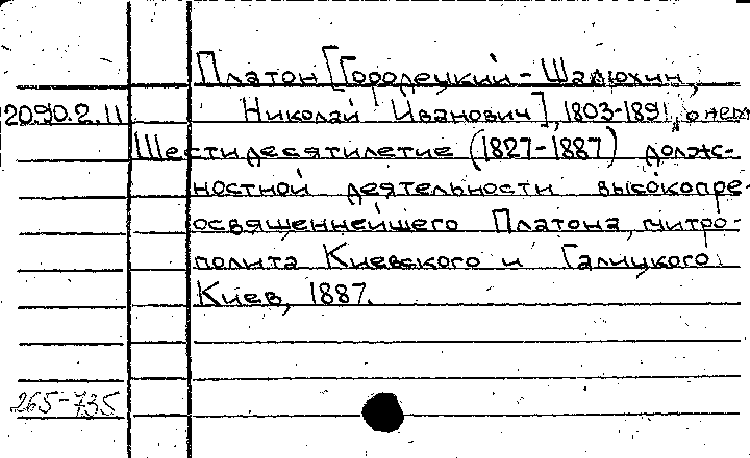 Платон [Городецкий-Шалюхин,
2090.2.11 Николай Иванович], 1803-1891, о нем
Шестидесятилетие (1827-1887) долж-
ностной деятельности высокопре-
освященнейшего Платона, митро-
полита Киевского и Галицкого.
Киев, 1887.
265-735